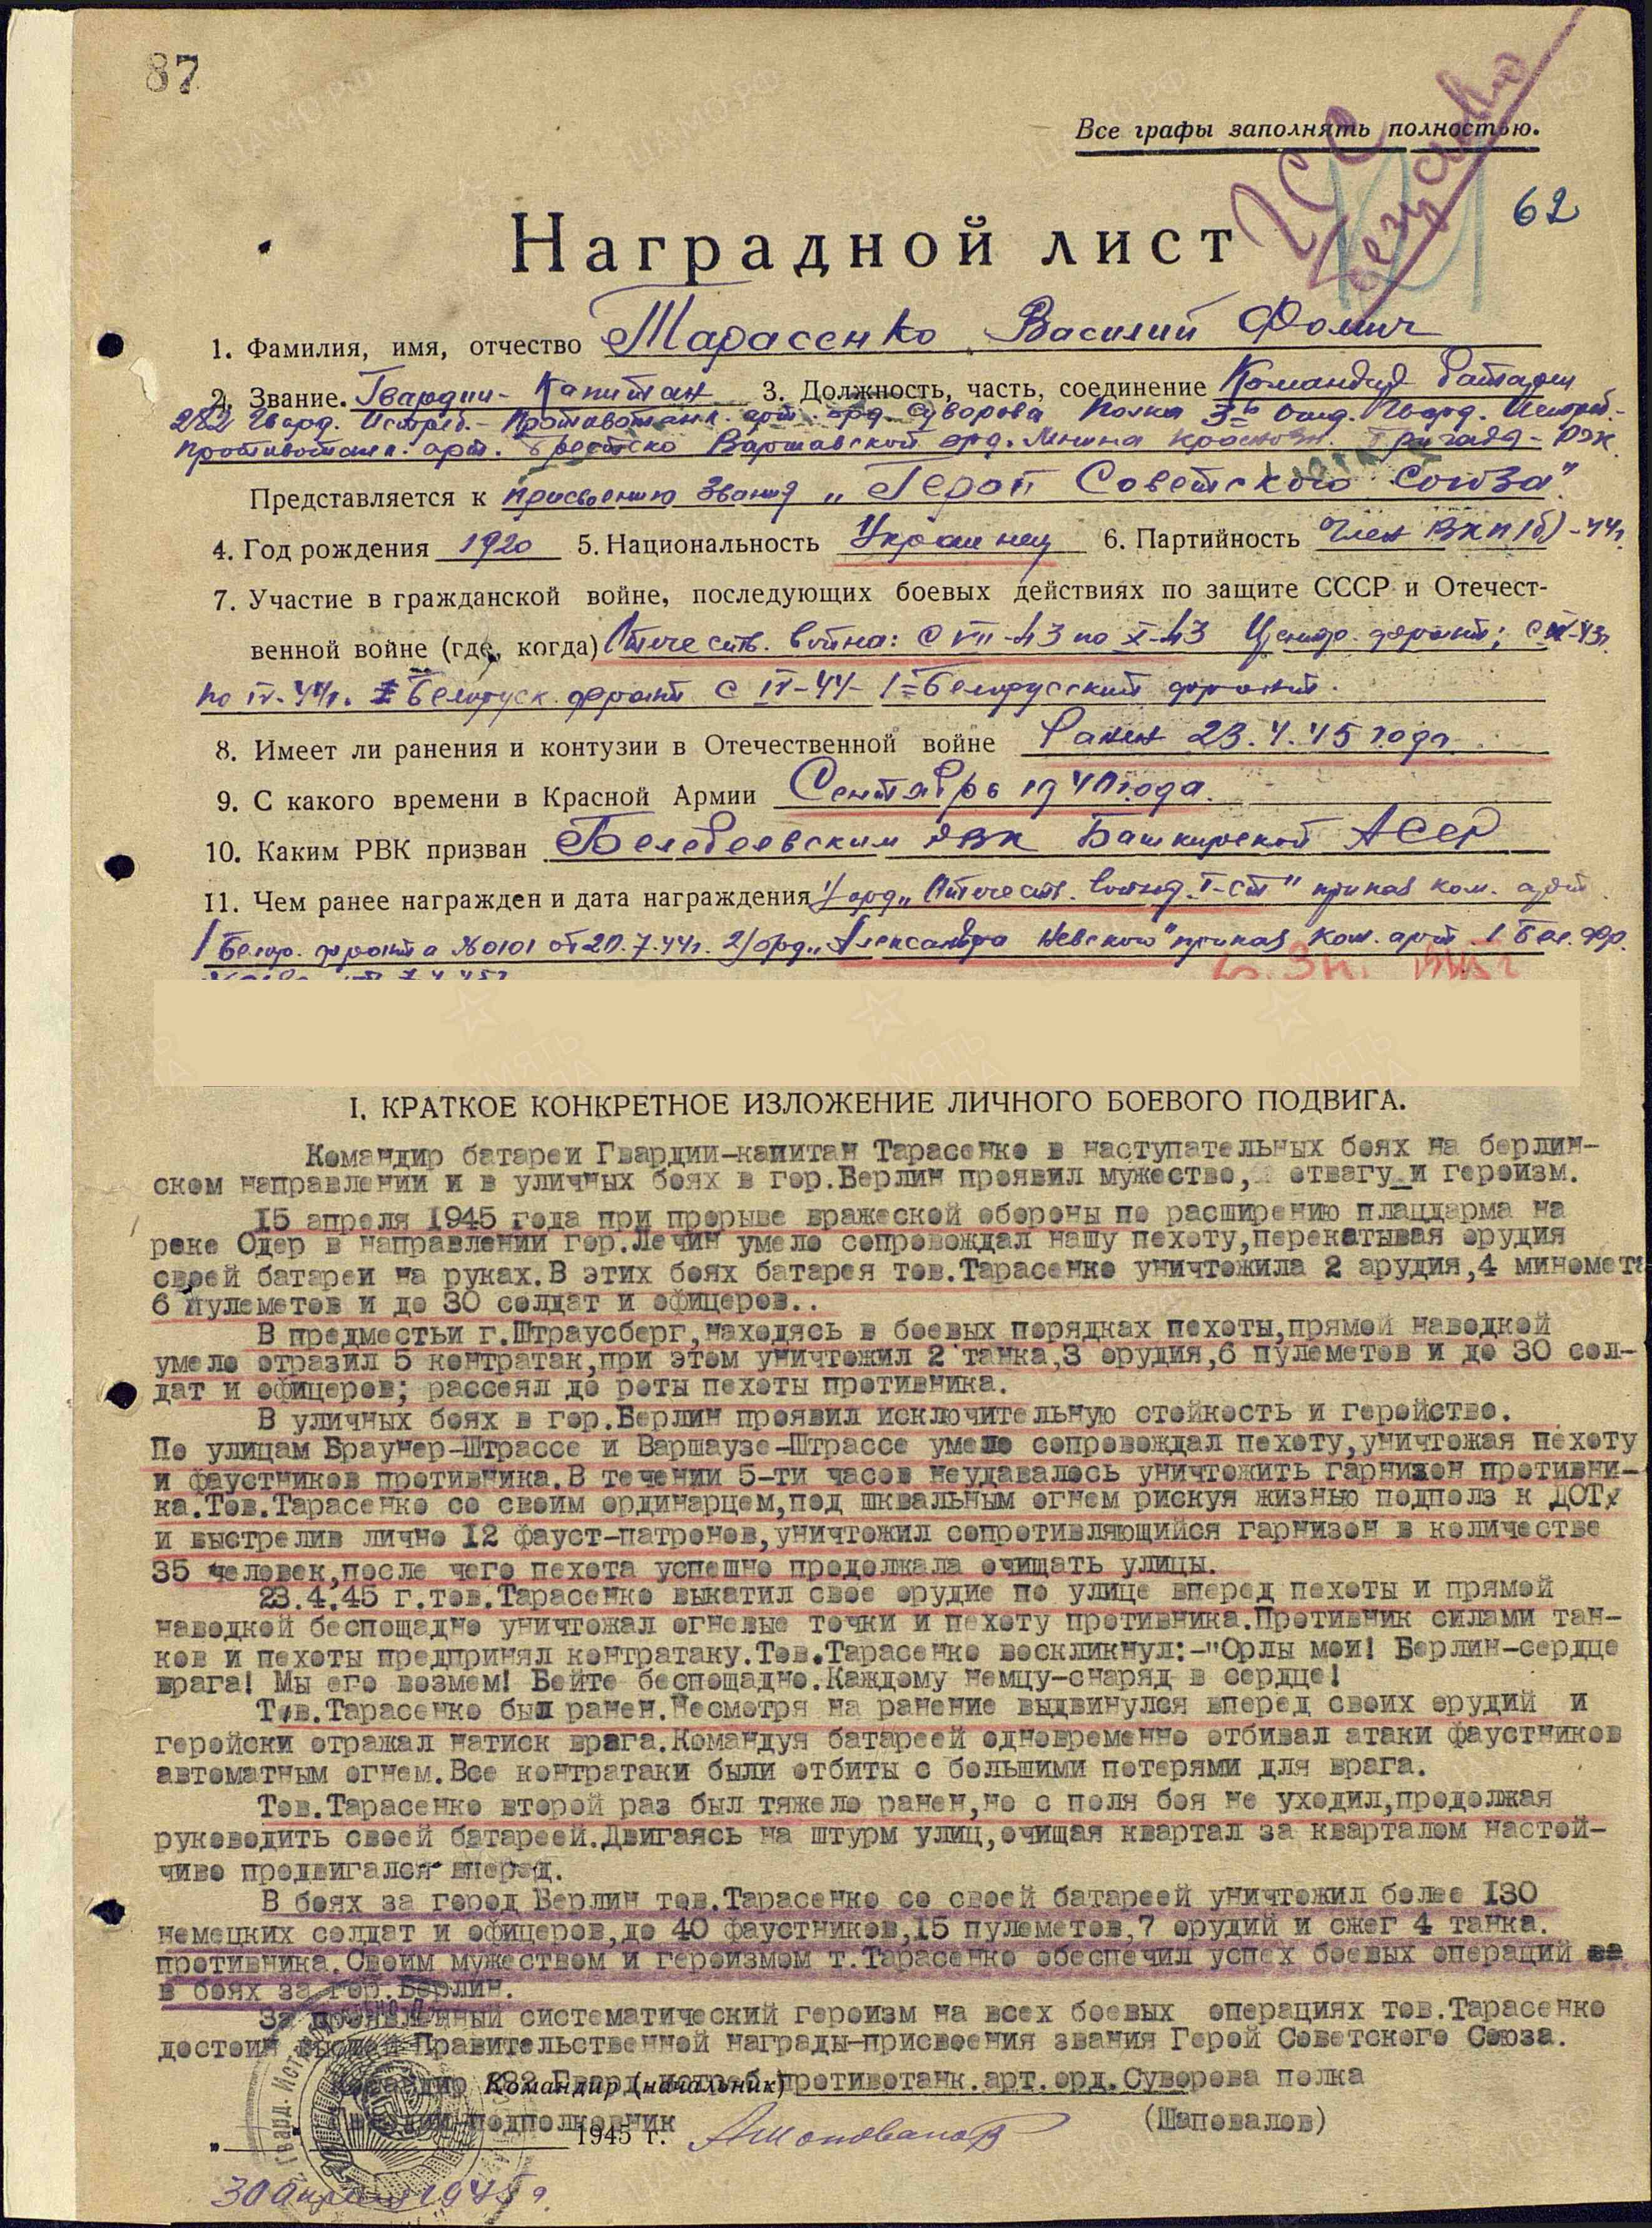 87
Все графы заполнять полностью.
ГСС
62
Наградной лист
1. Фамилия, имя, отчество Тарасенко Василий Фомич
2. Звание. Гвардии-Капитан 3. Должность, часть, соединение Командир батареи
282 Гвард. Истреб.-Противотанк. арт. орд. Суворова Полка 3й отд. Гвард. Истреб.-
противотанк. арт. Брестско Варшавской орд. Ленина Краснозн. Бригады - РГК
Представляется к присвоению звания „Герой Советского Союза"
4. Год рождения 1920 5. Национальность Украинец 6. Партийность Член ВКП(б)-44г.
7. Участие в гражданской войне, последующих боевых действиях по защите СССР и Отечест-
венной войне (где, когда) Отечеств. война: с VII-43 по X-43 Центр. фронт; с X-43г.
по IV-44г. Белорус. фронт с IV-44- 1й Белорусский фронт.
8. Имеет ли ранения и контузии в Отечественной войне Ранен 23.4.45 года.
9. С какого времени в Красной Армии Сентябрь 1940 года.
10. Каким РВК призван Белебеевским РВК Башкирской АССР
11. Чем ранее награжден и дата награждения 1/ орд „Отечеств. войны I-ст" приказ ком. арт
1 Белор. фронта №0101 от 20.7.44г. 2/ орд. „Александра Невского" приказ Ком. арт 1 Бел. Фр.
I. КРАТКОЕ КОНКРЕТНОЕ ИЗЛОЖЕНИЕ ЛИЧНОГО БОЕВОГО ПОДВИГА.
Командир батареи Гвардии-капитан Тарасенко в наступательных боях на берлин-
ском направлении и в уличных боях в гор.Берлин проявил мужество, отвагу и героизм.
15 апреля 1945 года при прорыве вражеской обороны по расширению плацдарма на
реке Одер в направлении гор.Лечин умело сопровождал нашу пехоту,перекатывая орудия
своей батареи на руках.В этих боях батарея тов.Тарасенко уничтожила 2 арудия,4 миномета
6 пулеметов и до 30 солдат и офицеров..
В предместьи г.Штраусберг,находясь в боевых порядках пехоты,прямой наводкой
умело отразил 5 контратак,при этом уничтожил 2 танка,3 орудия,6 пулеметов и до 30 сол-
дат и офицеров; рассеял до роты пехоты противника.
В уличных боях в гор.Берлин проявил исключительную стойкость и геройство.
По улицам Браунер-Штрассе и Варшаузе-Штрассе умело сопровождал пехоту,уничтожая пехоту
и фаустников противника.В течении 5-ти часов неудавалось уничтожить гарнизон противни-
ка.Тов.Тарасенко со своим ординарцем,под шквальным огнем рискуя жизнью подполз к ДОТу
и выстрелив лично 12 фауст-патронов,уничтожил сопротивляющийся гарнизон в количестве
35 человек,после чего пехота успешно продолжала очищать улицы.
23.4.45 г.тов.Тарасенко выкатил свое орудие по улице вперед пехоты и прямой
наводкой беспощадно уничтожал огневые точки и пехоту противника.Противник силами тан-
ков и пехоты предпринял контратаку.Тов.Тарасенко воскликнул:-"Орлы мои! Берлин-сердце
врага! Мы его возмем! Бейте беспощадно.Каждому немцу-снаряд в сердце!
Тов.Тарасенко был ранен.Несмотря на ранение выдвинулся вперед своих орудий и
геройски отражал натиск врага.Командуя батареей одновременно отбивал атаки фаустников
автоматным огнем.Все контратаки были отбиты с большими потерями для врага.
Тов.Тарасенко второй раз был тяжело ранен,но с поля боя не уходил,продолжая
руководить своей батареей.Двигаясь на штурм улиц,очищая квартал за кварталом настой-
чиво продвигался вперед.
В боях за город Берлин тов.Тарасенко со своей батареей уничтожил более 130
немецких солдат и офицеров,до 40 фаустников,15 пулеметов,7 орудий и сжег 4 танка.
противника.Своим мужеством и героизмом т.Тарасенко обеспечил успех боевых операций
в боях за гор.Берлин.
За проявленный систематический героизм на всех боевых операциях тов.Тарасенко
достоин высшей Правительственной награды-присвоения звания Герой Советского Союза.
Командир 282 Гвард.истреб.противотанк.арт.орд.Суворова полка
Командир (начальник)
Гвардии подполковник (Шаповалов)
1945 г.
30 Апреля 1945г.